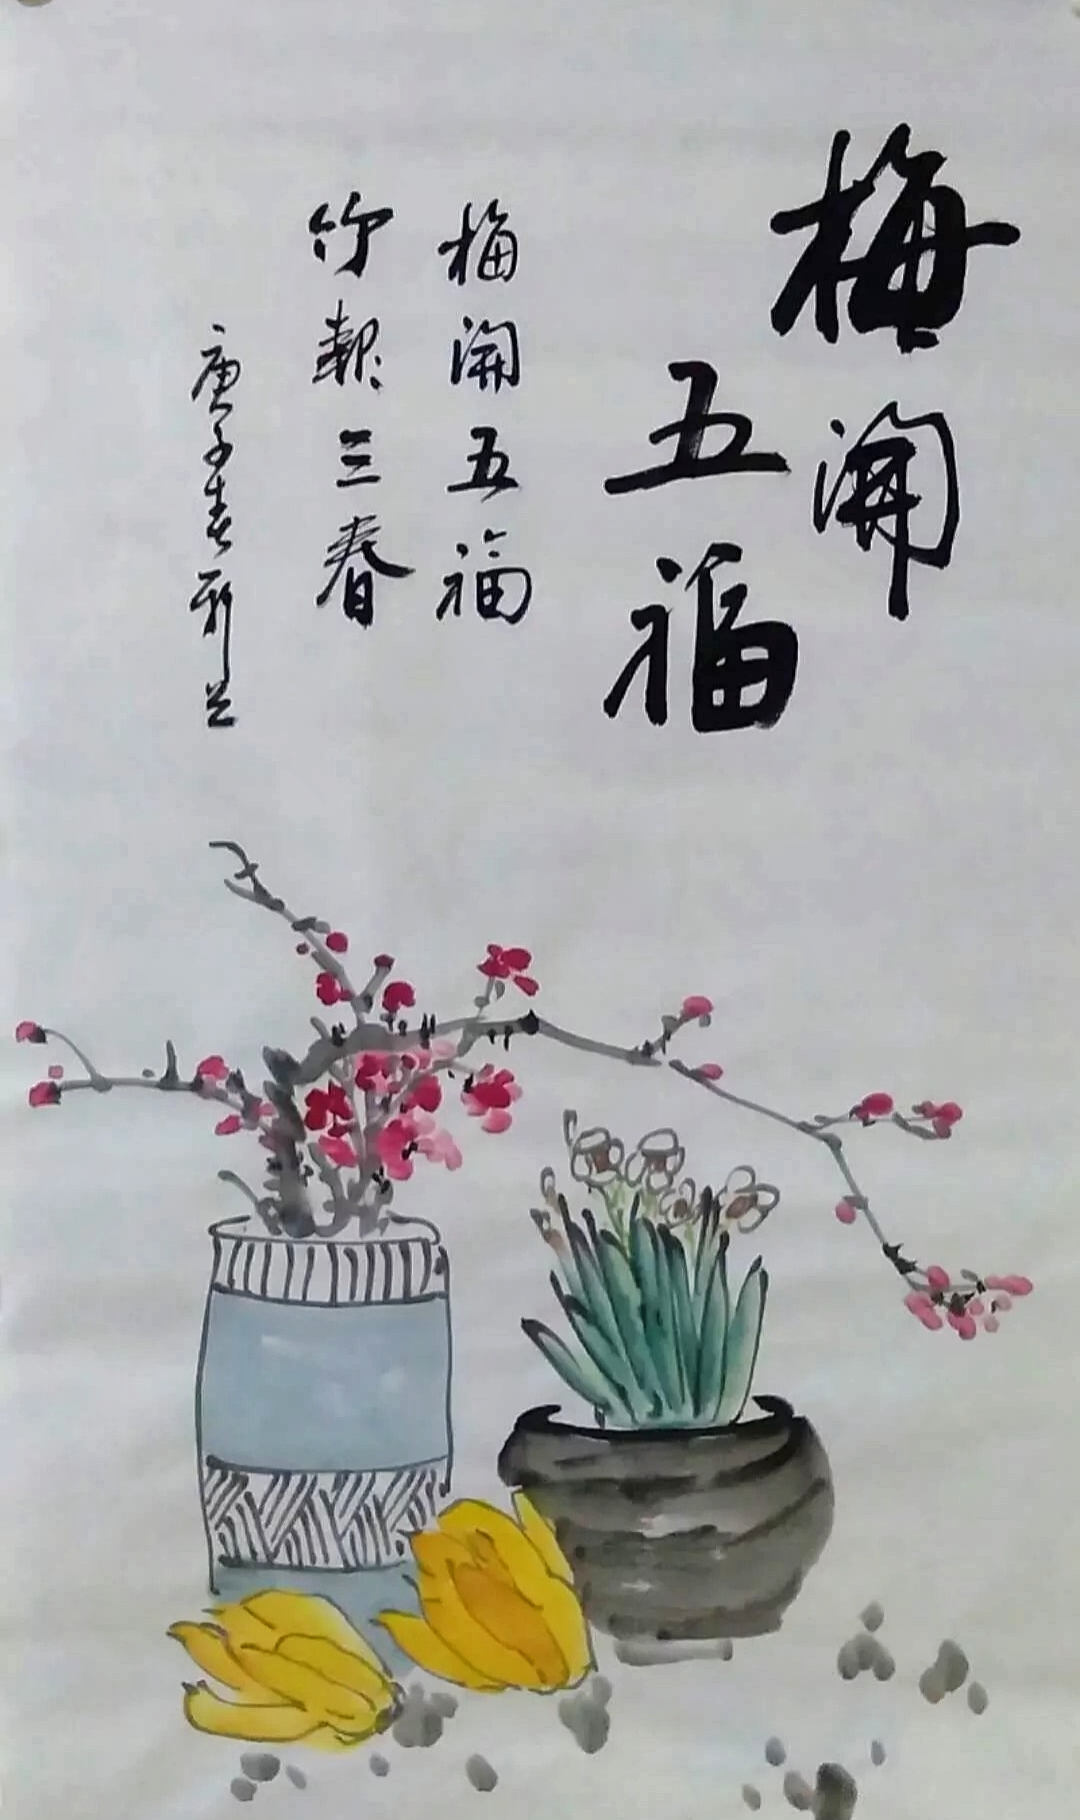 梅開
五福
梅開五福
竹報三春
庚子春